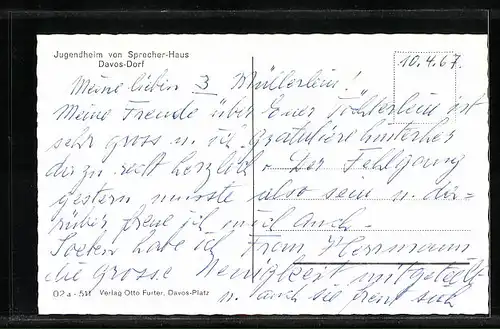 Jugendheim von Sprecher-Haus
Davos-Dorf
10.4.67.
Meine lieben 3 Müllerlein!
Meine Freude über Euer Töchterlein ist
sehr gross u. ich gratuliere hinterher
dazu recht herzlich. Der Fehlgang
gestern musste also sein u. da=
rüber freue ich mich auch.
Soeben habe ich Frau Herrmann
die grosse Neuigkeit mitgeteilt
u. auch sie freut sich
D2a - 511 Verlag Otto Furter, Davos-Platz